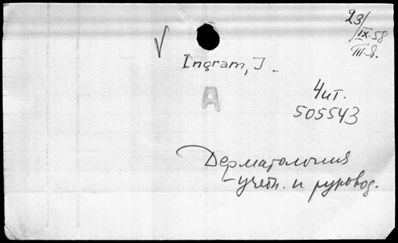 23/
IX-58
III-Я.
Ingram, J.
A
Чит.
505543
Дерматология
- учебн. и руковод.